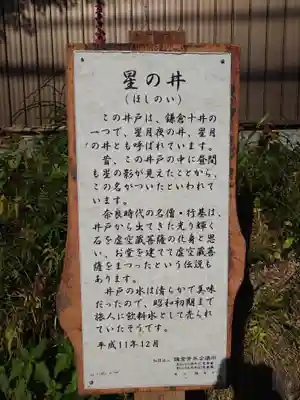 星の井
（ほしのい）
この井戸は、鎌倉十井の
一つで、星月夜の井、星月
の井とも呼ばれています。
昔、この井戸の中に昼間
も星の影が見えたことから、
この名がついたといわれて
います。
奈良時代の名僧・行基は、
井戸から出てきた光り輝く
石を虚空蔵菩薩の化身と思
い、お堂を建てて虚空蔵菩
薩をまつったという伝説も
あります。
井戸の水は清らかで美味
だったので、昭和初期まで
旅人に飲料水として売られ
ていたそうです。
平成11年12月